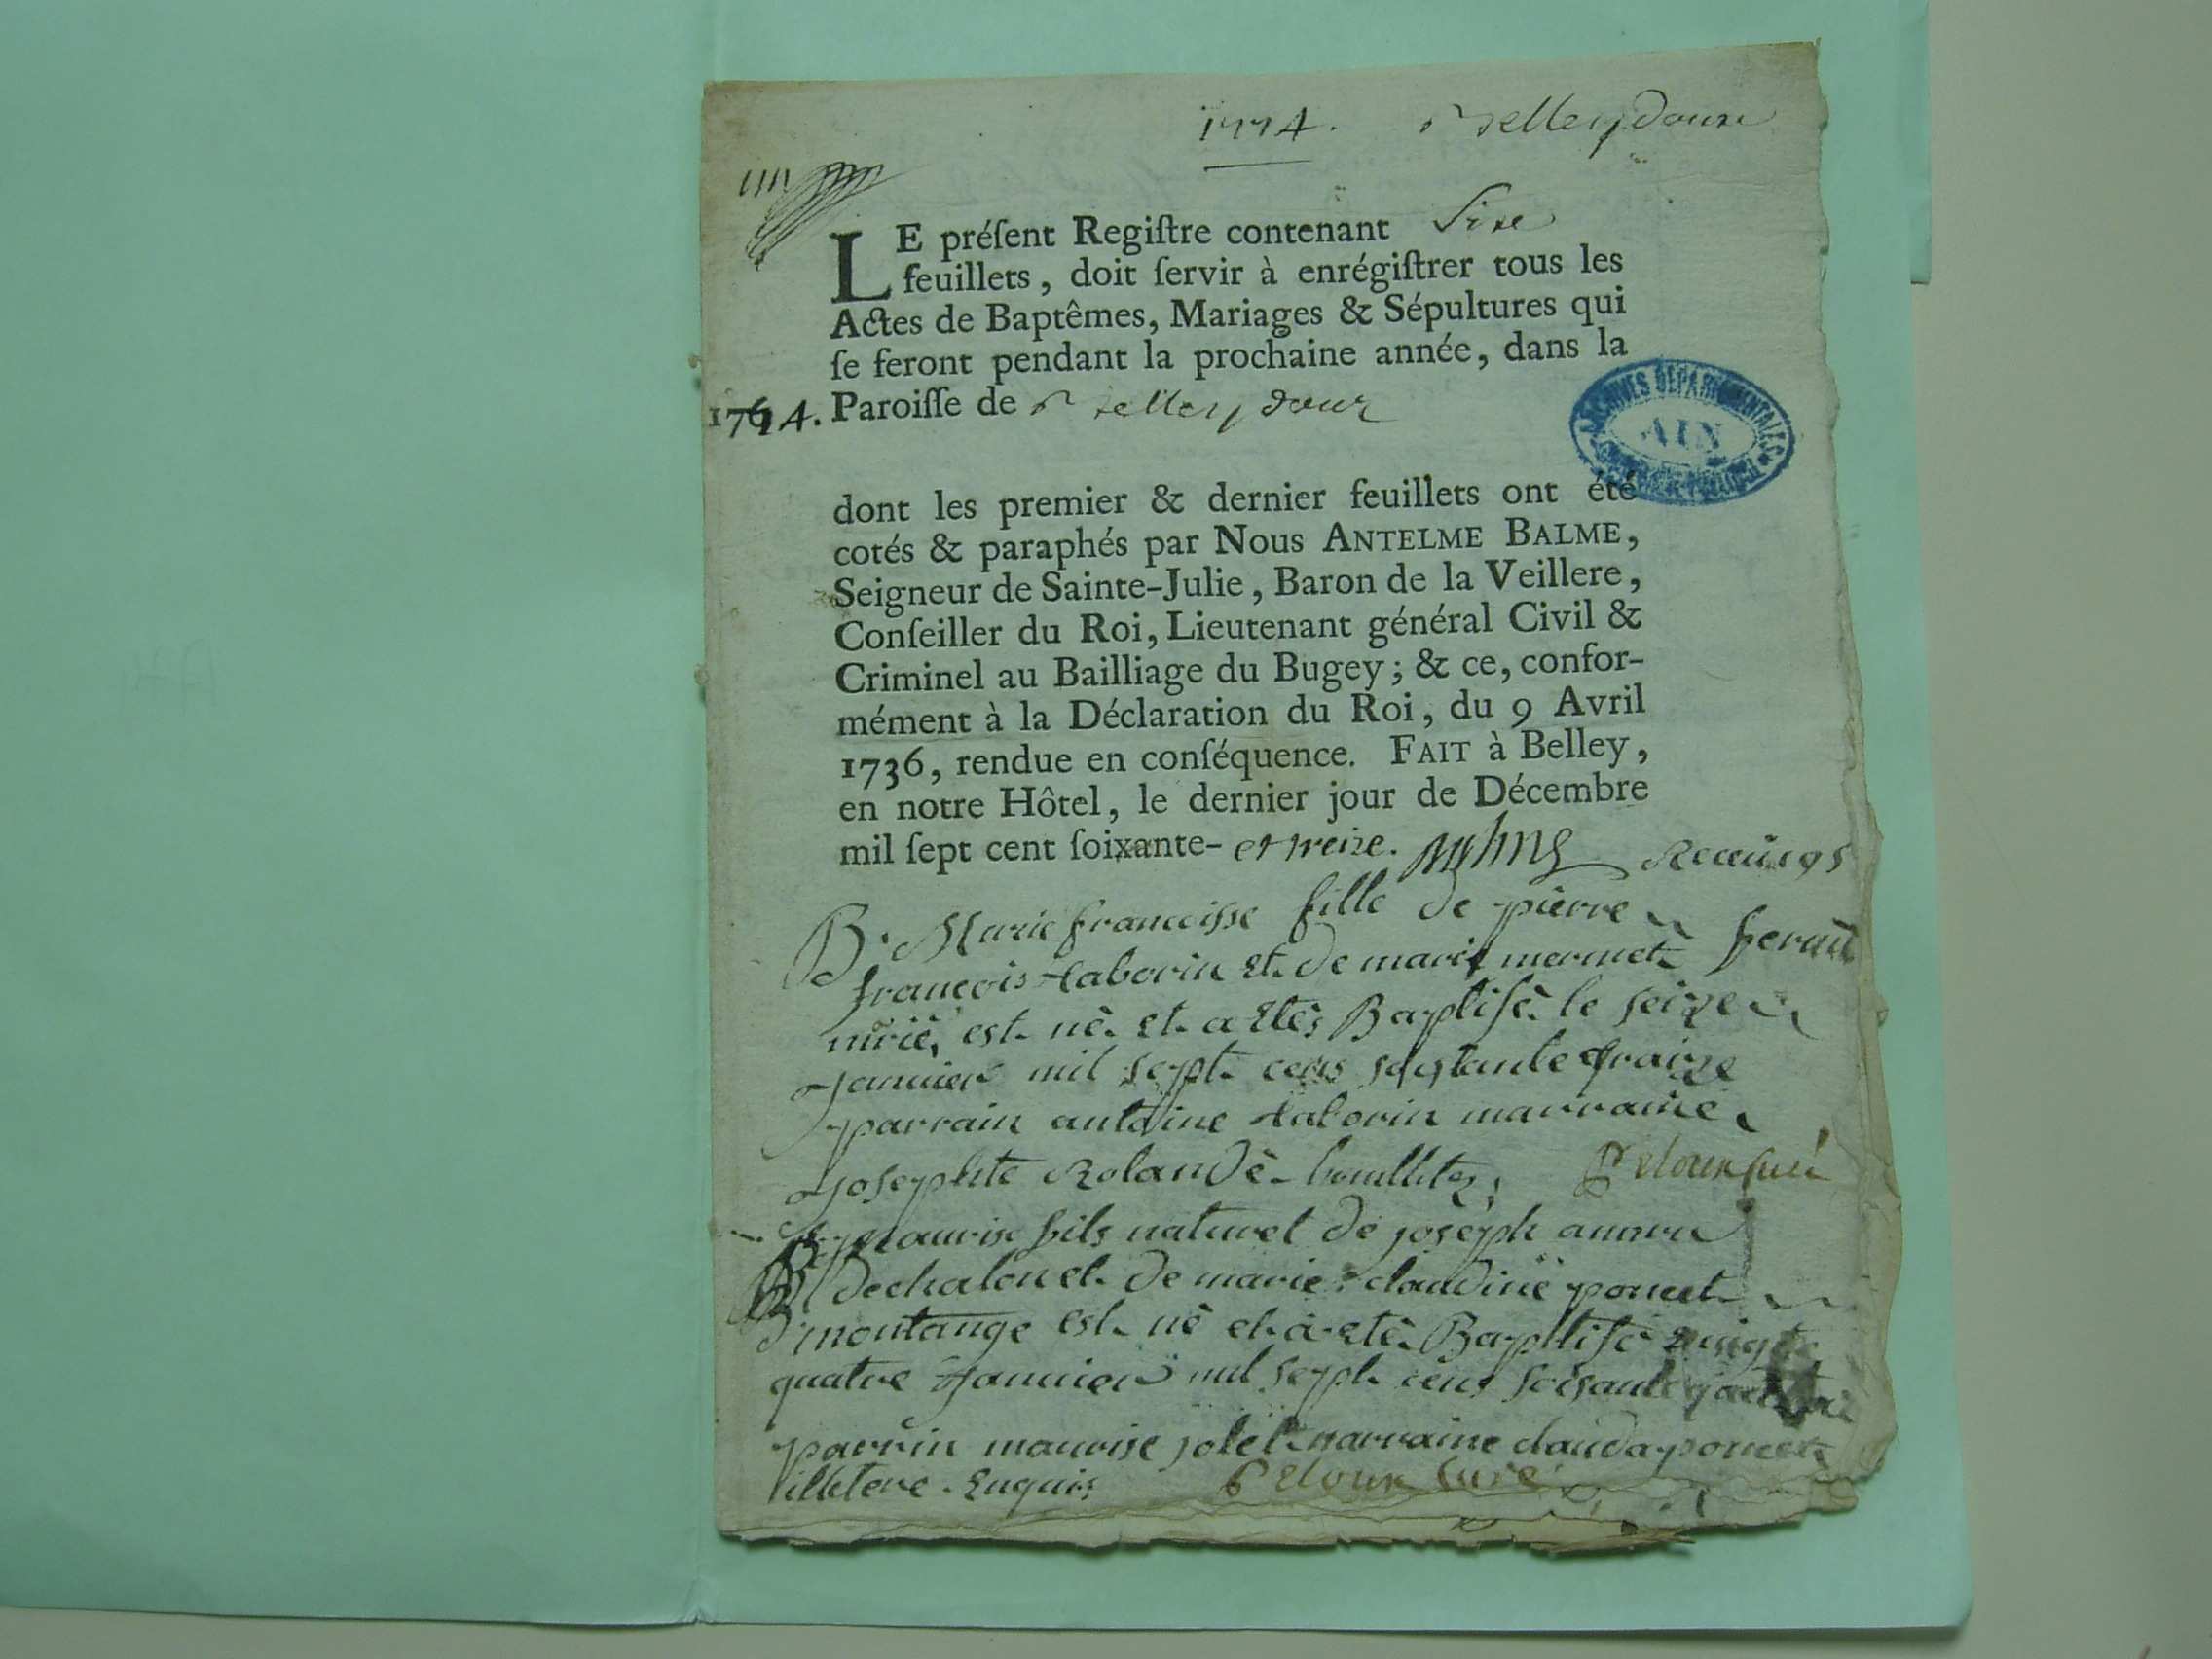 1774. Belleydoux
LE préſent Regiſtre contenant Sixe
feuillets, doit ſervir à enrégiſtrer tous les
Actes de Baptêmes, Mariages & Sépultures qui
ſe feront pendant la prochaine année, dans la
1774. Paroiſſe de Belleydoux
ARCHIVES DEPARTEMENTALES
AIN
dont les premier & dernier feuillets ont été
cotés & paraphés par Nous ANTELME BALME,
Seigneur de Sainte-Julie, Baron de la Veillere,
Conſeiller du Roi, Lieutenant général Civil &
Criminel au Bailliage du Bugey; & ce, confor-
mément à la Déclaration du Roi, du 9 Avril
1736, rendue en conſéquence. FAIT à Belley,
en notre Hôtel, le dernier jour de Décembre
mil ſept cent ſoixante- et treize.
B. Marie francoisse fille de pierre
francois taborin et de marie mermet
est né et a etés Baptisé le seize
janvier mil sept cens
parrain antoine taborin marraine
josephte Rolandè
maurise fils naturel de joseph
de marie claudine poncet
montange est né et a etè Baptisé
quatre janvier mil sept cens
parrin maurise jolet marraine clauda poncet
illitere enquis curé